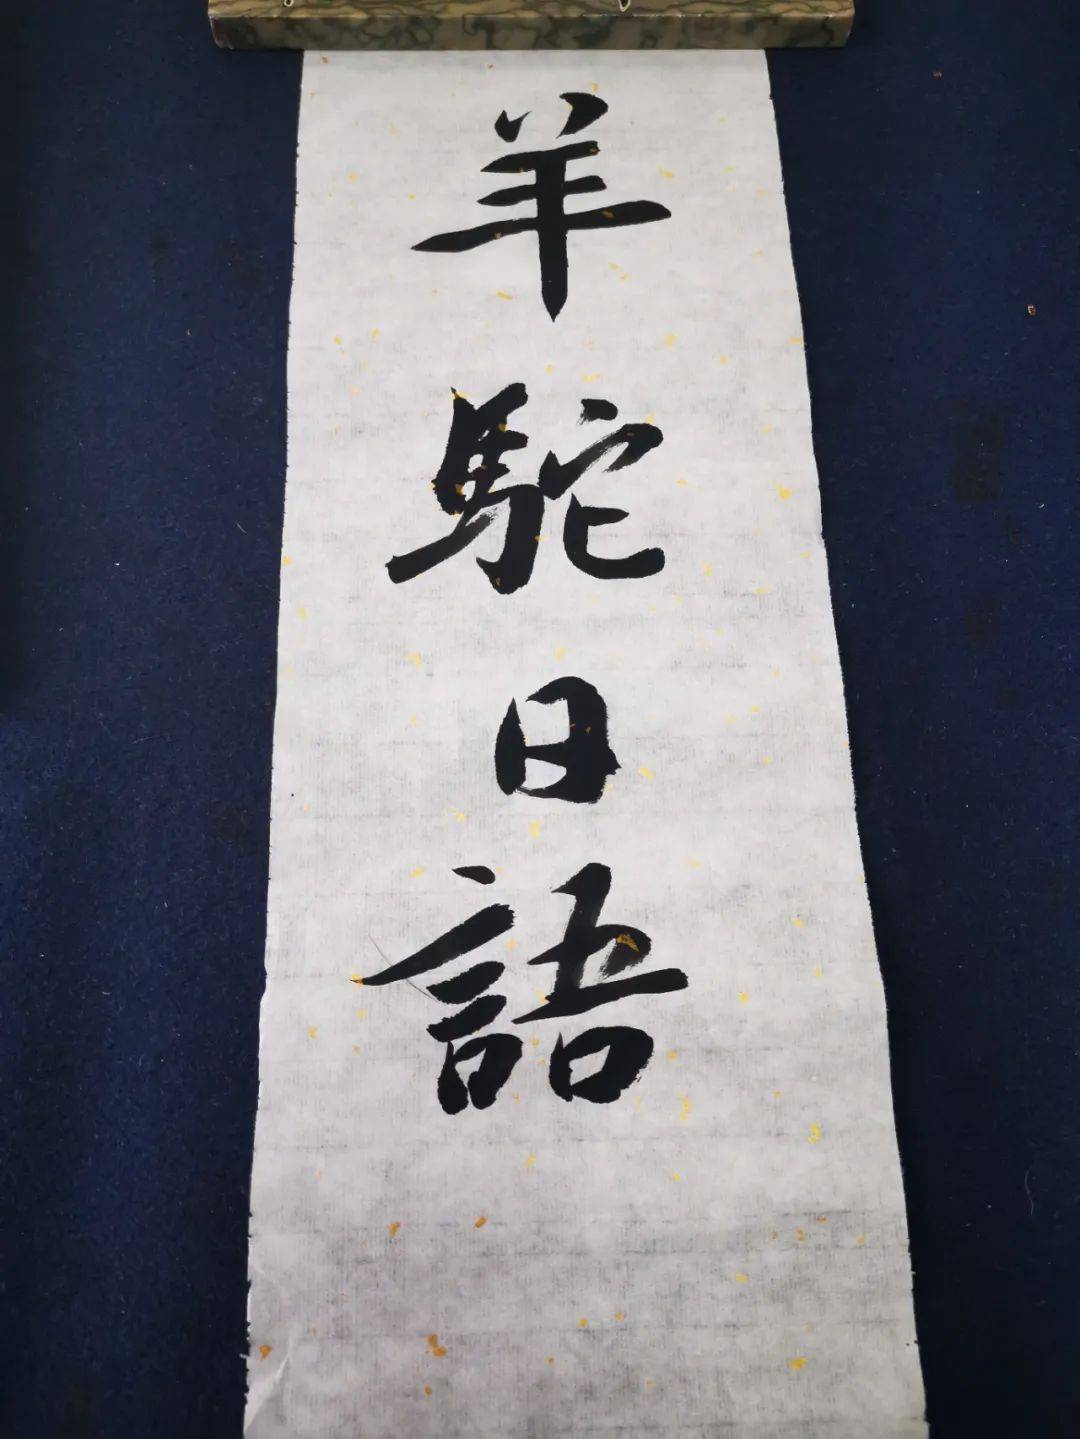 羊駝日語